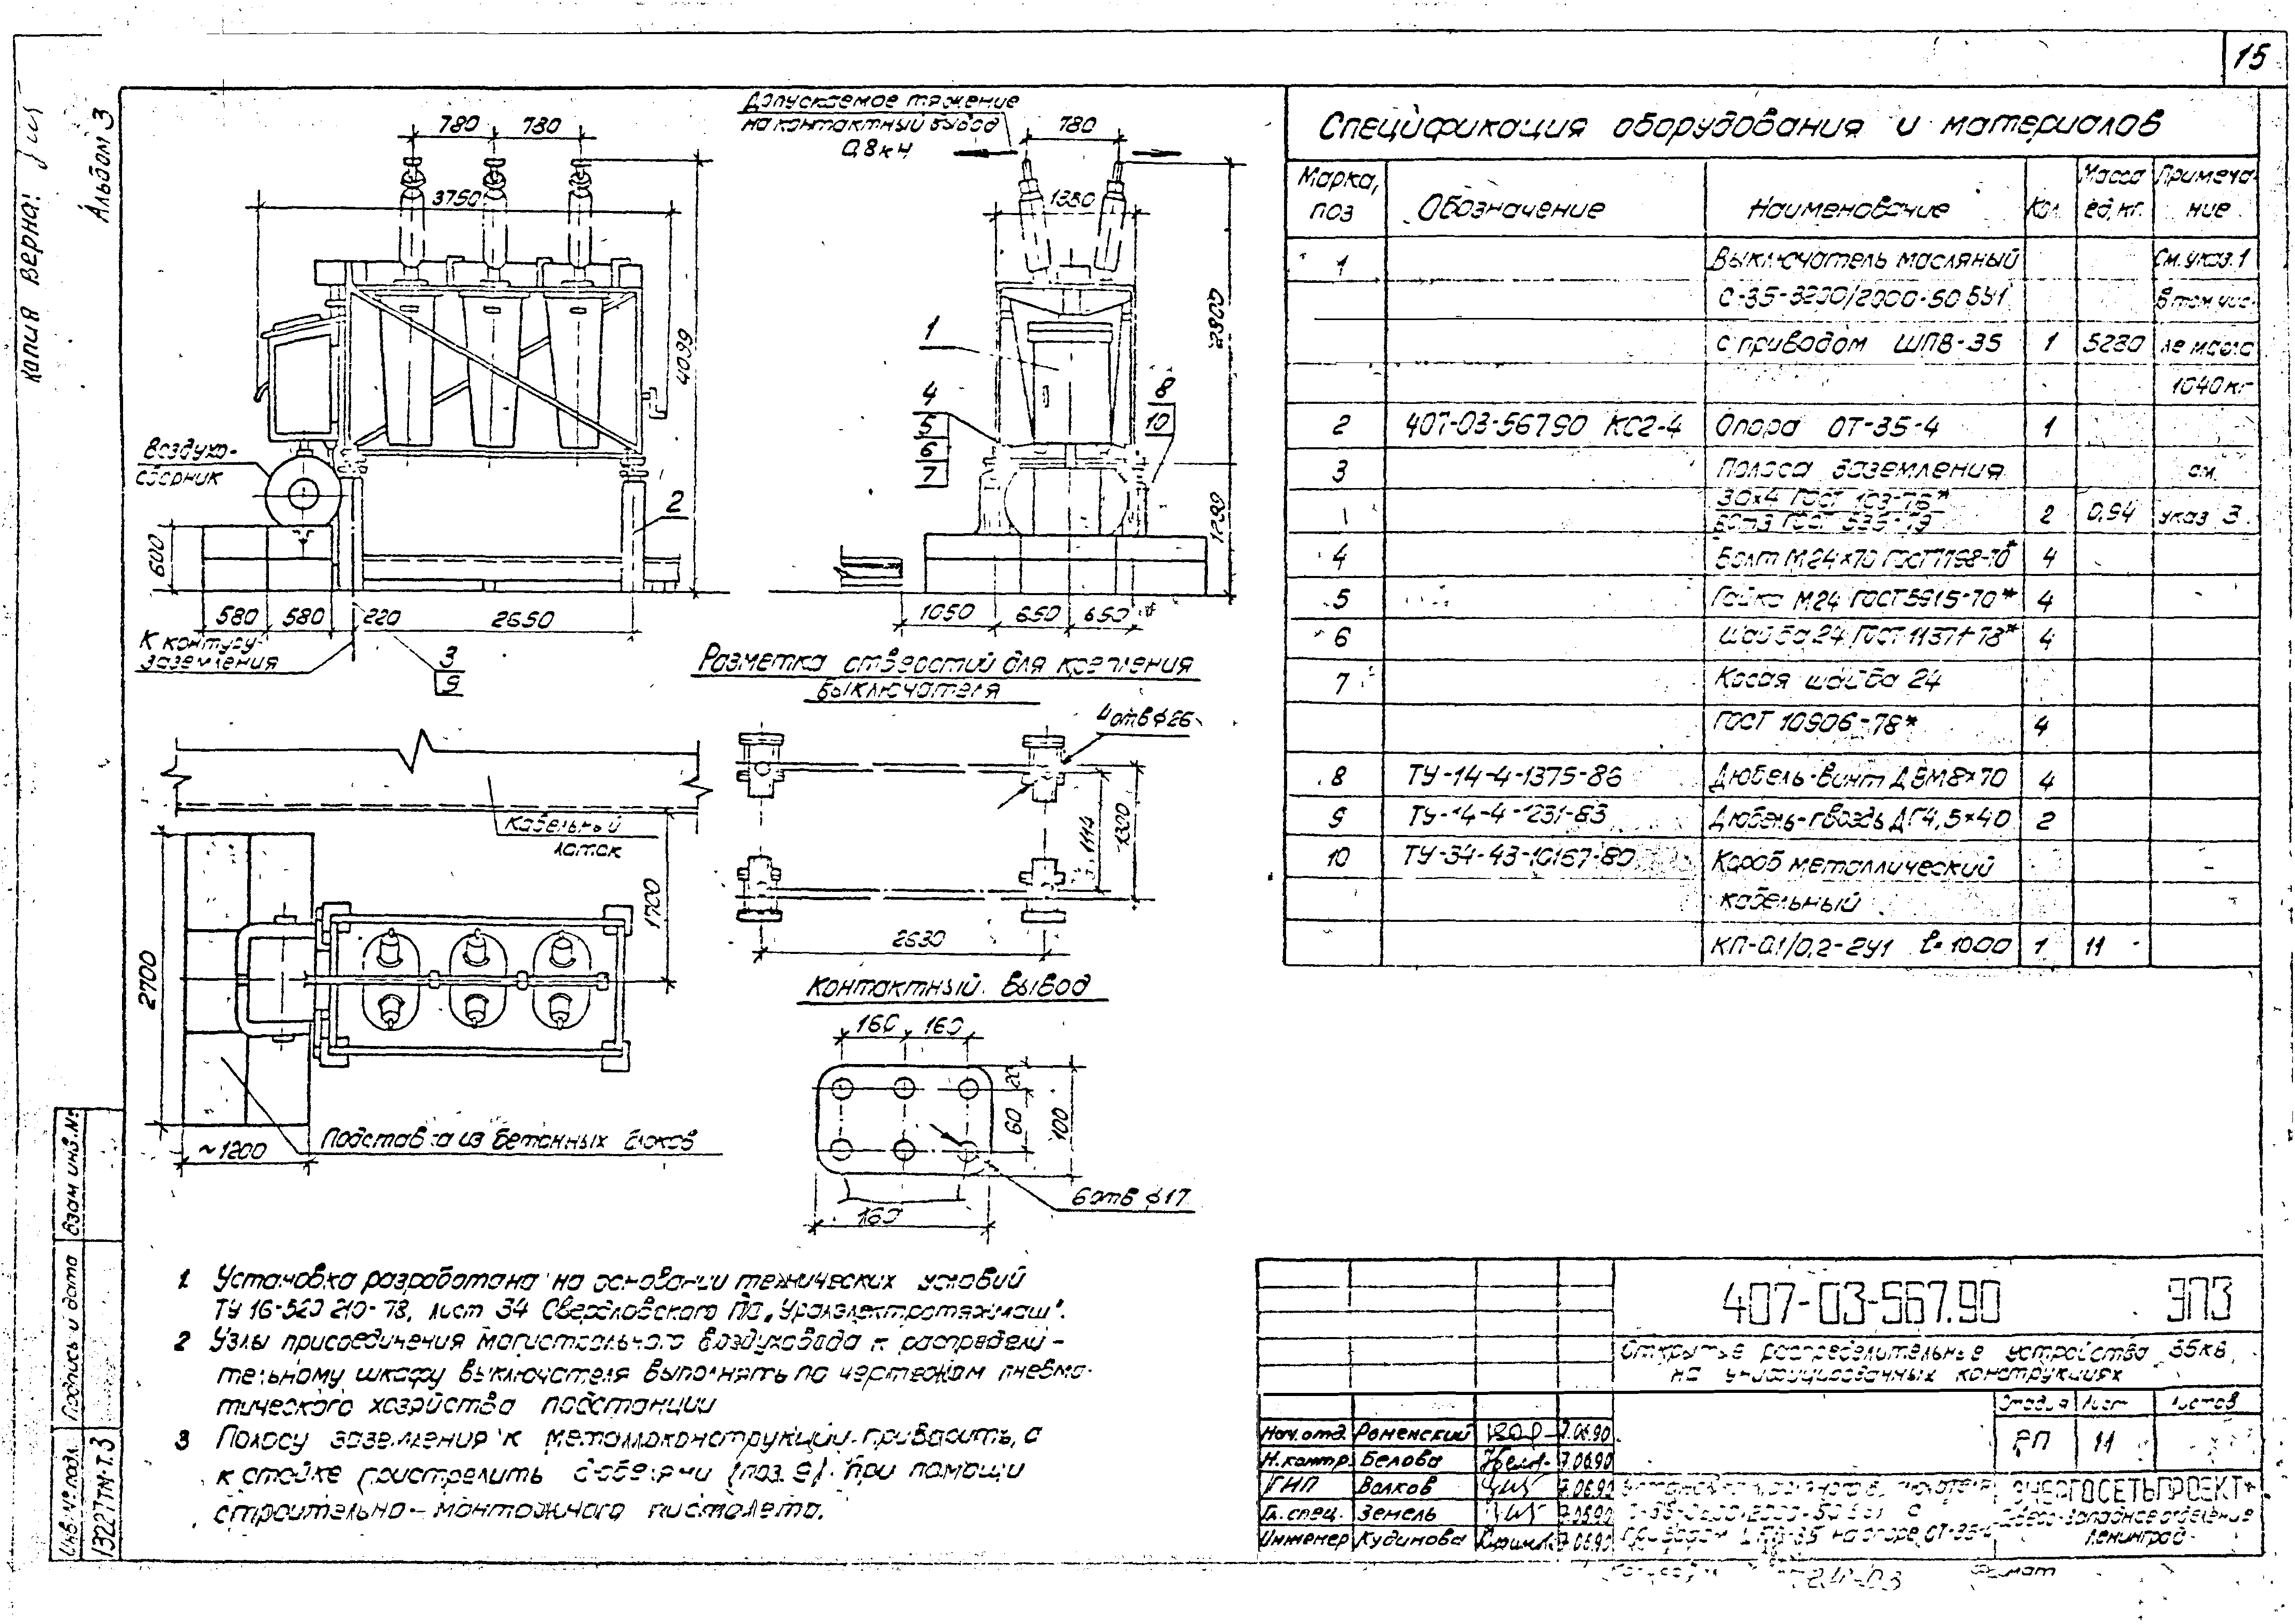 15
Альбом 3
Копия верна:
780 780
3750
4099
Воздухо-
сборник
600
580 580 220 2650
К контуру
заземления
3
9
2
Допускаемое тяжение
на контактный вывод
0,8кН
780
1
4
5
6
7
8
10
1050 650 650
Разметка отверстий для крепления
выключателя
4 отв ф26
1114
1300
2630
Кабельный
лоток
1700
2700
~1200
Подставка из бетонных блоков
Контактный вывод
160 160
20
60
100
6 отв ф17
160
1 Установка разработана на основании технических условий
ТУ 16-520 210-78, лист 34 Свердловского ПО „Уралэлектротяжмаш".
2 Узлы присоединения магистрального воздуховода к распредели-
тельному шкафу выключателя выполнять по чертежам пневма-
тического хозяйства подстанции
3 Полосу заземления к металлоконструкции приварить, а
к стойке пристрелить дюбелями (поз. 9) при помощи
строительно-монтажного пистолета.
Спецификация оборудования и материалов
Марка, поз Обозначение Наименование Кол. Масса ед, кг. Примеча- ние
1 Выключатель масляный См. указ. 1
С-35-3200/2000-50 БУ1 В том чис-
с приводом ШПВ-35 1 5280 ле масла
1040 кг
2 407-03-567.90 КС2-4 Опора ОТ-35-4 1
3 Полоса заземления см.
30х4 ГОСТ 103-76*
Вст3 ГОСТ 535-79 2 0,94 указ 3.
4 Болт М24х70 ГОСТ 7798-70* 4
5 Гайка М24 ГОСТ 5915-70* 4
6 Шайба 24 ГОСТ 11371-78* 4
7 Косая шайба 24
ГОСТ 10906-78* 4
8 ТУ-14-4-1375-86 Дюбель-винт ДВМ8×70 4
9 ТУ-14-4-1231-83 Дюбель-гвоздь ДГ4,5×40 2
10 ТУ-34-43-10167-80 Короб металлический
кабельный
КП-0.1/0,2-2У1 ℓ=1000 1 11
407-03-567.90 ЭПЗ
Открытые распределительные устройства 35кВ
на унифицированных конструкциях
Стадия Лист Листов
РП 11
Нач. отд. Роменский 7.06.90
Н. контр. Белова 7.06.90
ГИП Волков 7.06.90
Гл. спец. Земель 7.06.90
Инженер Кудинова 7.06.90
приводом ШПВ-35 на опоре ОТ-35-4
ЭНЕРГОСЕТЬПРОЕКТ
Северо-западное отделение
Ленинград
Формат
Взам инв. №
Подпись и дата
Инв. № подл.
13227ТМ-Т.3